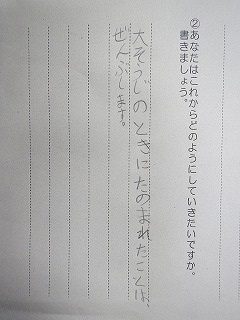 ②あなたはこれからどのようにしていきたいですか。
書きましょう。
大そうじのときにたのまれたことは、
ぜんぶします。